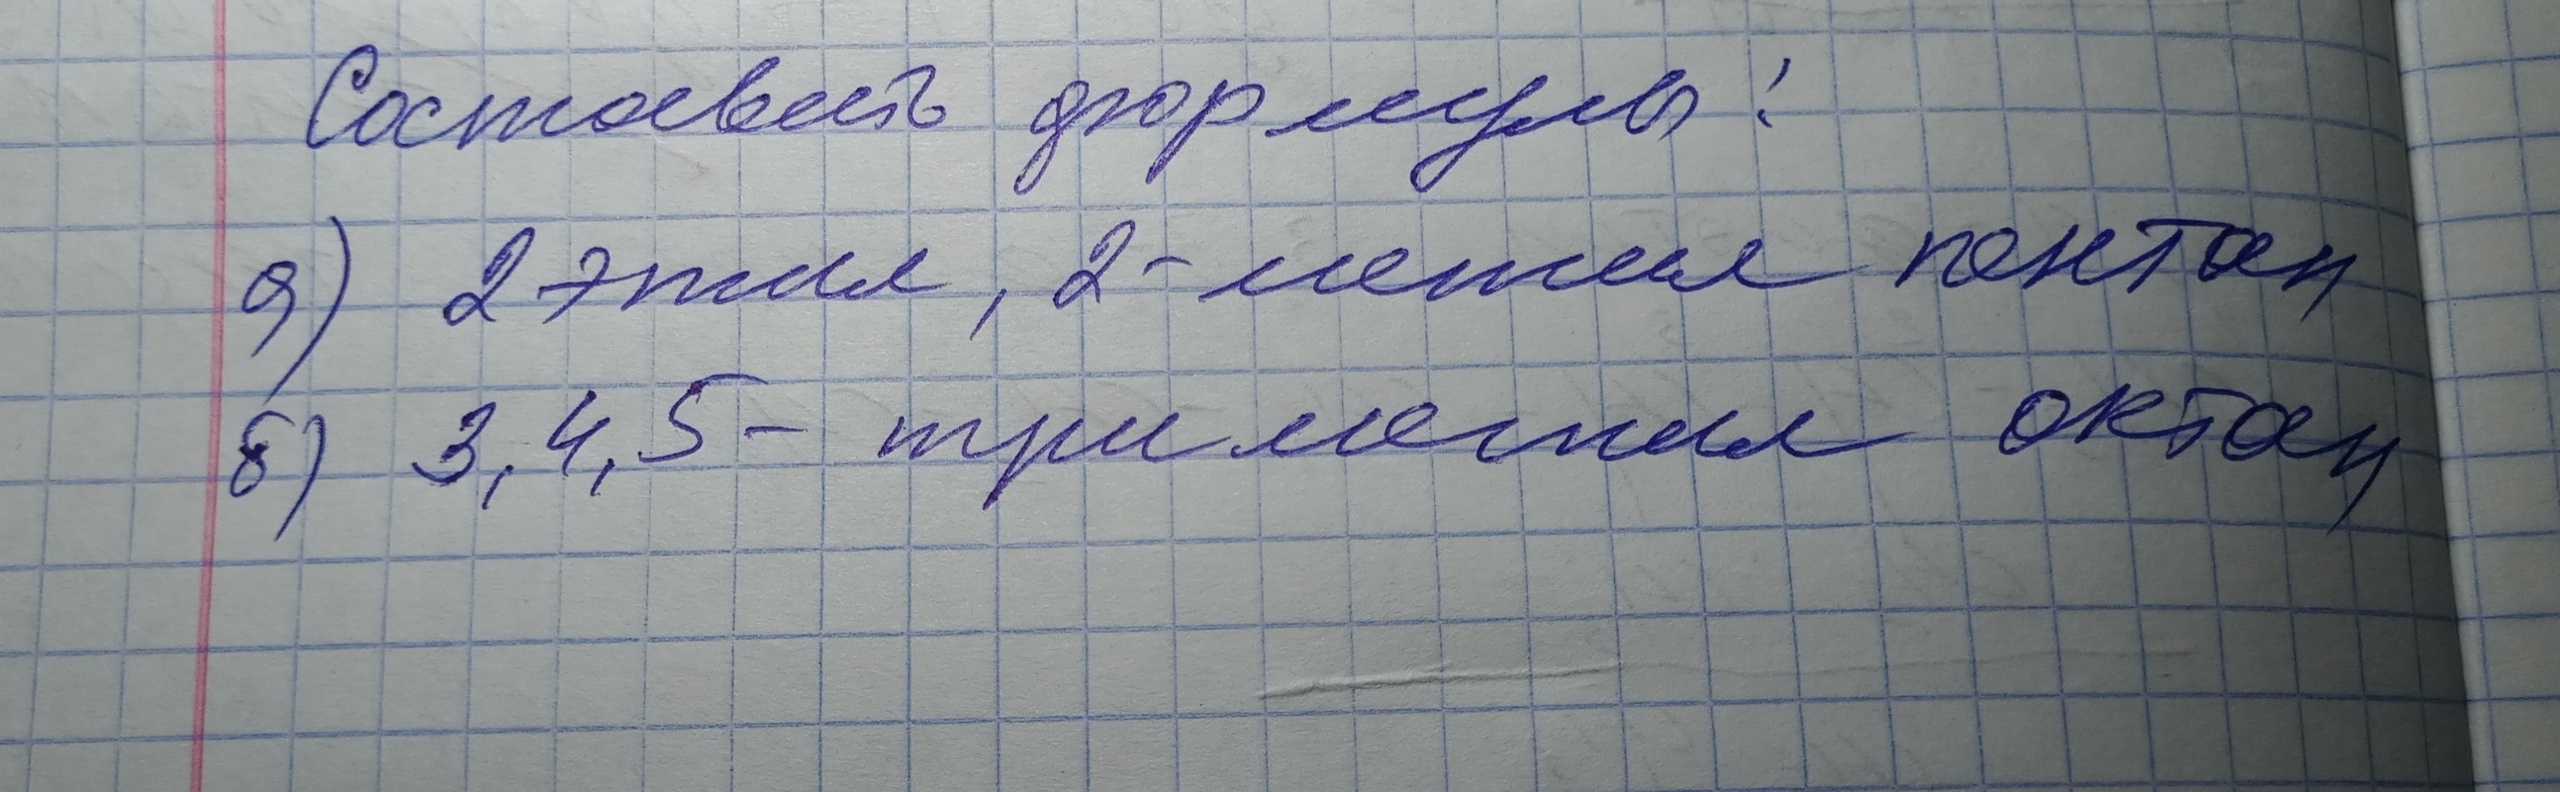 Составить формулы:
а) 2 этил, 2-метил пентан
б) 3,4,5- триметил октан